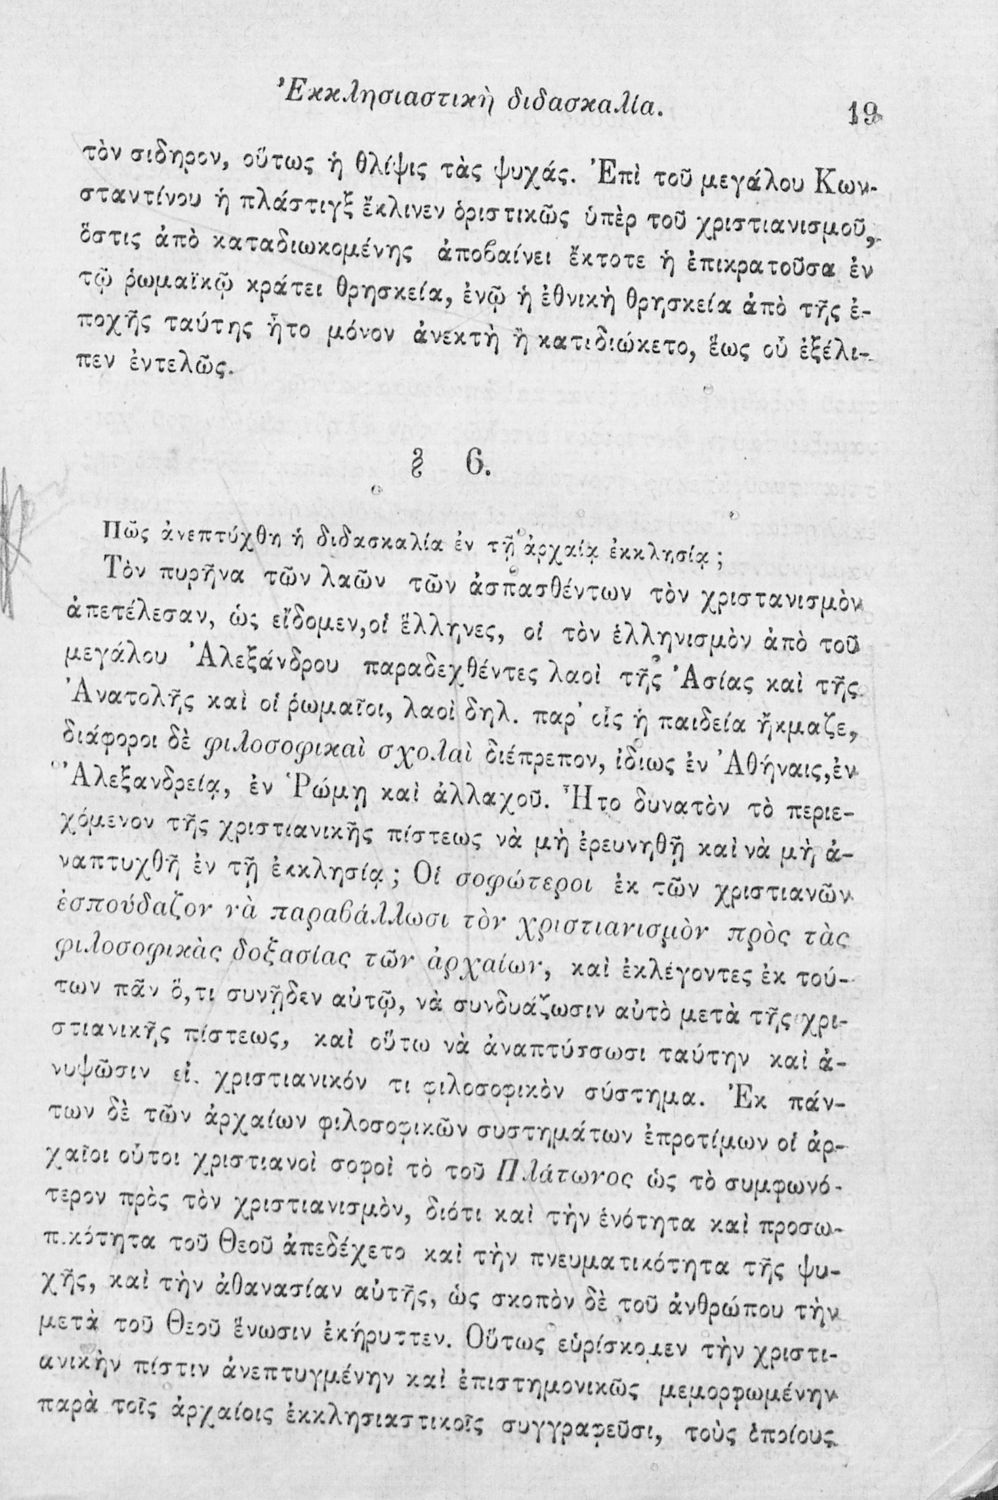 Ἐκκλησιαστικὴ διδασκαλία. 19
τὸν σιδηρον, οὕτως ἡ θλίψις τὰς ψυχάς. Ἐπὶ τοῦ μεγάλου Κων-
σταντίνου ἡ πλάστιγξ ἔκλινεν ὁριστικῶς ὑπὲρ τοῦ χριστιανισμοῦ,
ὅστις ἀπὸ καταδιωκομένης ἀποβαίνει ἔκτοτε ἡ ἐπικρατοῦσα ἐν
τῷ ῥωμαϊκῷ κράτει θρησκεία, ἐνῷ ἡ ἐθνικὴ θρησκεία ἀπὸ τῆς ἐ-
ποχῆς ταύτης ἦτο μόνον ἀνεκτὴ ἢ κατεδιώκετο, ἕως οὗ ἐξέλι-
πεν ἐντελῶς.
§ 6.
Πῶς ἀνεπτύχθη ἡ διδασκαλία ἐν τῇ ἀρχαίᾳ ἐκκλησίᾳ;
Τὸν πυρῆνα τῶν λαῶν τῶν ἀσπασθέντων τὸν χριστανισμὸν
ἀπετέλεσαν, ὡς εἴδομεν, οἱ ἕλληνες, οἱ τὸν ἑλληνισμὸν ἀπὸ τοῦ
μεγάλου Ἀλεξάνδρου παραδεχθέντες λαοὶ τῆς Ἀσίας καὶ τῆς
Ἀνατολῆς καὶ οἱ ῥωμαῖοι, λαοὶ δηλ. παρ' οἷς ἡ παιδεία ἤκμαζε,
διάφοροι δὲ φιλοσοφικαὶ σχολαὶ διέπρεπον, ἰδίως ἐν Ἀθήναις, ἐν
Ἀλεξανδρείᾳ, ἐν Ῥώμῃ καὶ ἀλλαχοῦ. Ἦτο δυνατὸν τὸ περιε-
χόμενον τῆς χριστιανικῆς πίστεως νὰ μὴ ἐρευνηθῇ καὶ νὰ μὴ ἀ-
ναπτυχθῇ ἐν τῇ ἐκκλησίᾳ; Οἱ σοφώτεροι ἐκ τῶν χριστιανῶν
ἐσπούδαζον νὰ παραβάλλωσι τὸν χριστιανισμὸν πρὸς τὰς
φιλοσοφικὰς δοξασίας τῶν ἀρχαίων, καὶ ἐκλέγοντες ἐκ τού-
των πᾶν ὅ,τι συνῇδεν αὐτῷ, νὰ συνδυάζωσιν αὐτὸ μετὰ τῆς χρι-
στιανικῆς πίστεως, καὶ οὕτω νὰ ἀναπτύσσωσι ταύτην καὶ ἀ-
νυψῶσιν εἰ. χριστιανικόν τι φιλοσοφικὸν σύστημα. Ἐκ πάν-
των δὲ τῶν ἀρχαίων φιλοσοφικῶν συστημάτων ἐπροτίμων οἱ ἀρ-
χαῖοι οὗτοι χριστιανοὶ σοφοὶ τὸ τοῦ Πλάτωνος ὡς τὸ συμφωνό-
τερον πρὸς τὸν χριστιανισμὸν, διότι καὶ τὴν ἑνότητα καὶ προσω-
πικότητα τοῦ Θεοῦ ἀπεδέχετο καὶ τὴν πνευματικότητα τῆς ψυ-
χῆς, καὶ τὴν ἀθανασίαν αὐτῆς, ὡς σκοπὸν δὲ τοῦ ἀνθρώπου τὴν
μετὰ τοῦ Θεοῦ ἕνωσιν ἐκήρυττεν. Οὕτως εὑρίσκομεν τὴν χριστι-
ανικὴν πίστιν ἀνεπτυγμένην καὶ ἐπιστημονικῶς μεμορφωμένην
παρὰ τοῖς ἀρχαίοις ἐκκλησιαστικοῖς συγγραφεῦσι, τοὺς ὁποίους